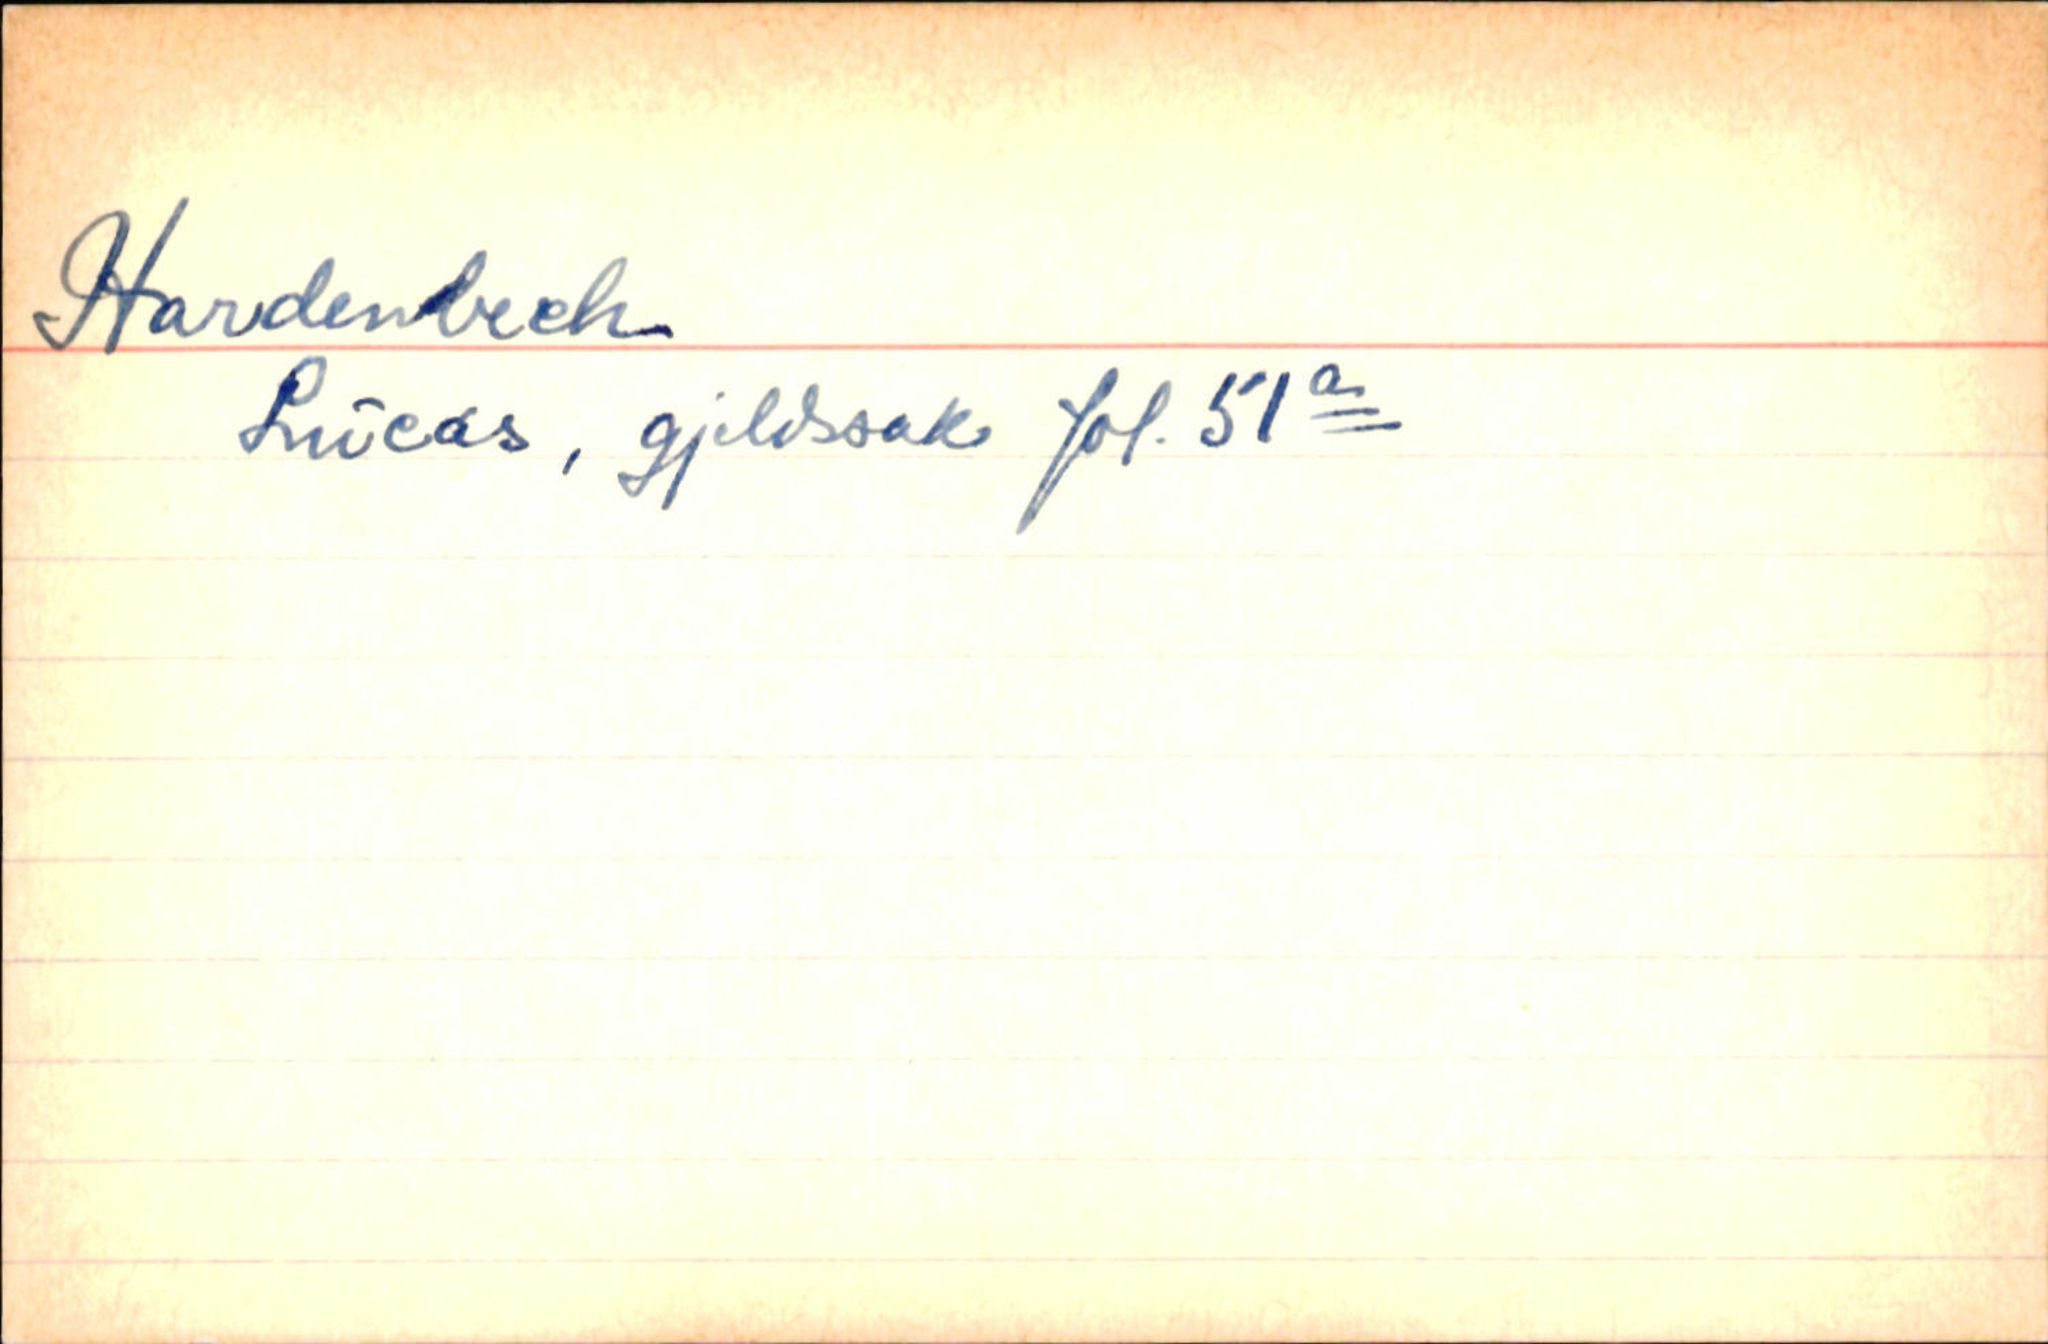 Hardenbech
Lucas, gjeldssak fol. 51a